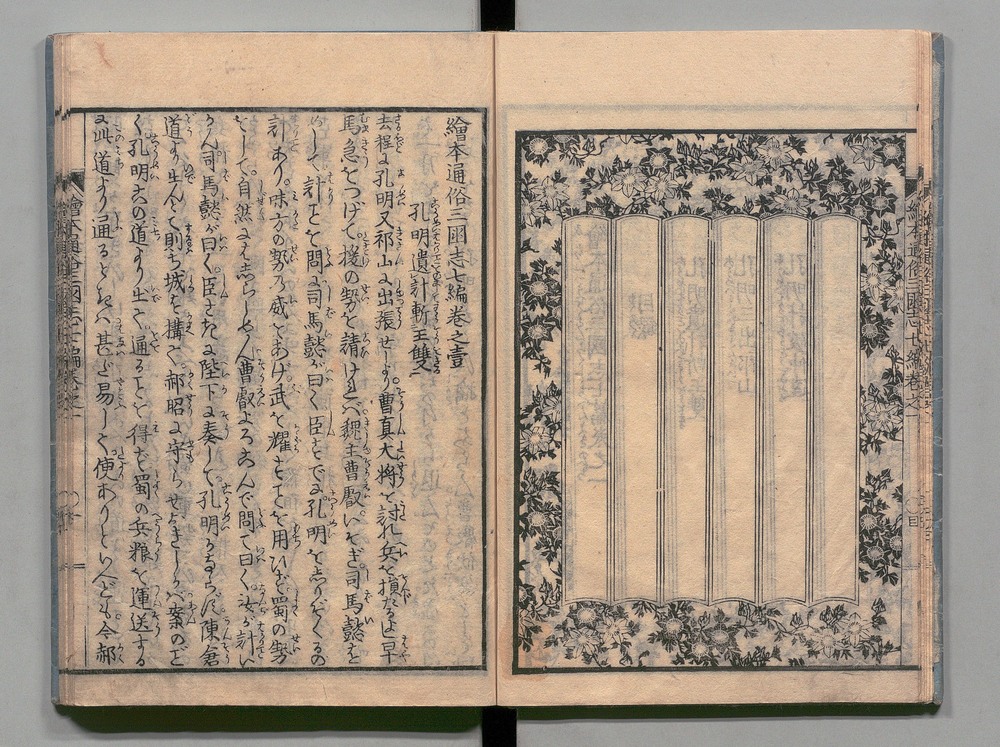 繪本通俗三國志七編卷之壹
孔明遺計斬王雙
去程に孔明又祁山に出張せしより。曹真大將を討れ兵を損ずるよし早
馬急をつげて援の勢を請けれバ。魏主曹叡いそぎ司馬懿を
めして計ごとを問ふ司馬懿が曰く臣すでに孔明を志りぞくるの
計あり。味方の勢の威をあげ武を耀すことを用ひずして蜀の勢
をして。自然にはしらしめん曹叡よろこんで問て曰く。汝が計い
かん司馬懿が曰く。臣さきに陛下に奏して。孔明かならず陳倉
道より出んと則ち城を構て。郝昭に守らせおきしが。案のごと
く孔明この道より出て通ることを得ず蜀の兵粮を運送する
に此道より通るときハ甚だ易しくて便ありといへども。今郝
繪本通俗三國志七編卷之一